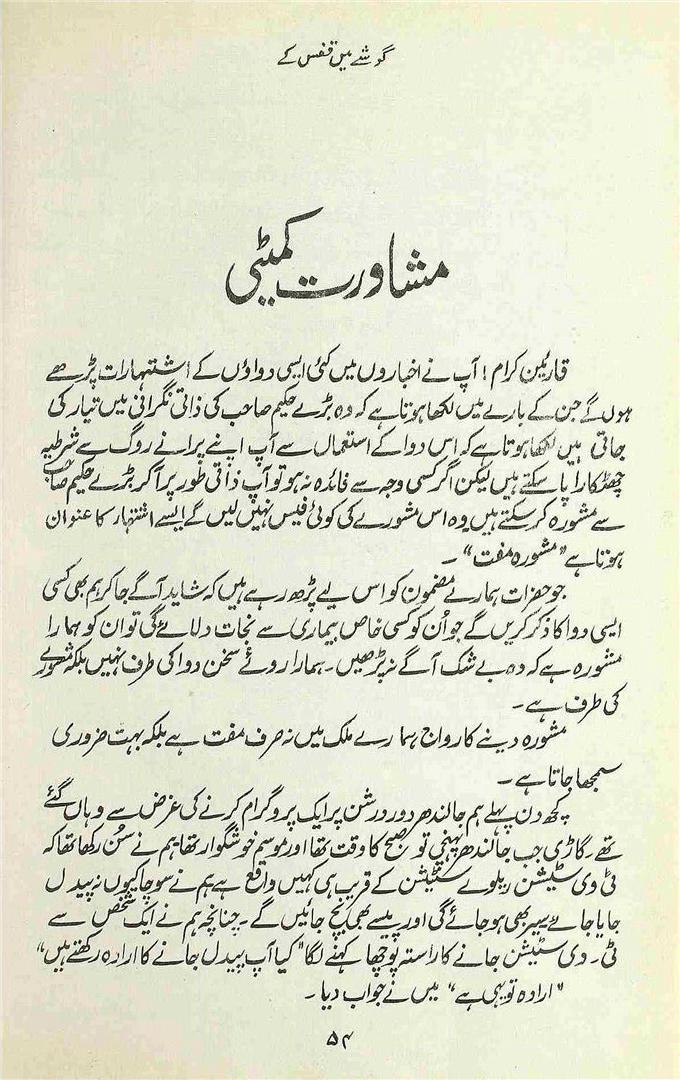 گوشے میں قفس کے
مشاورت کمیٹی
قارئین کرام! آپ نے اخباروں میں کئی ایسی دواؤں کے اشتہارات پڑھے
ہوں گے جن کے بارے میں لکھا ہوتا ہے کہ وہ بڑے حکیم صاحب کی ذاتی نگرانی میں تیار کی
جاتی ہیں لکھا ہوتا ہے کہ اس دوا کے استعمال سے آپ اپنے پرانے روگ سے شرطیہ
چھٹکارا پا سکتے ہیں لیکن اگر کسی وجہ سے فائدہ نہ ہو تو آپ ذاتی طور پر آکر بڑے حکیم صاحب
سے مشورہ کر سکتے ہیں وہ اس مشورے کی کوئی فیس نہیں لیں گے ایسے اشتہار کا عنوان
ہوتا ہے "مشورہ مفت"۔
جو حضرات ہمارے مضمون کو اس لیے پڑھ رہے ہیں کہ شاید آگے جا کر ہم بھی کسی
ایسی دوا کا ذکر کریں گے جو اُن کو کسی خاص بیماری سے نجات دلائے گی تو ان کو ہمارا
مشورہ ہے کہ وہ بے شک آگے نہ پڑھیں۔ ہمارا روئے سخن دوا کی طرف نہیں بلکہ مشورے
کی طرف ہے۔
مشورہ دینے کا رواج ہمارے ملک میں نہ صرف مفت ہے بلکہ بہت ضروری
سمجھا جاتا ہے۔
کچھ دن پہلے ہم جالندھر دور درشن پر ایک پروگرام کرنے کی غرض سے وہاں گئے
تھے۔ گاڑی جب جالندھر پہنچی تو صبح کا وقت تھا اور موسم خوشگوار تھا ہم نے سُن رکھا تھا کہ
ٹی وی سٹیشن ریلوے سٹیشن کے قریب ہی کہیں واقع ہے ہم نے سوچا کیوں نہ پیدل
جایا جائے سیر بھی ہو جائے گی اور پیسے بھی بچ جائیں گے۔ چنانچہ ہم نے ایک شخص سے
ٹی۔ وی سٹیشن جانے کا راستہ پوچھا کہنے لگا "کیا آپ پیدل جانے کا ارادہ رکھتے ہیں"
"ارادہ تو یہی ہے" میں نے جواب دیا۔
۵۴